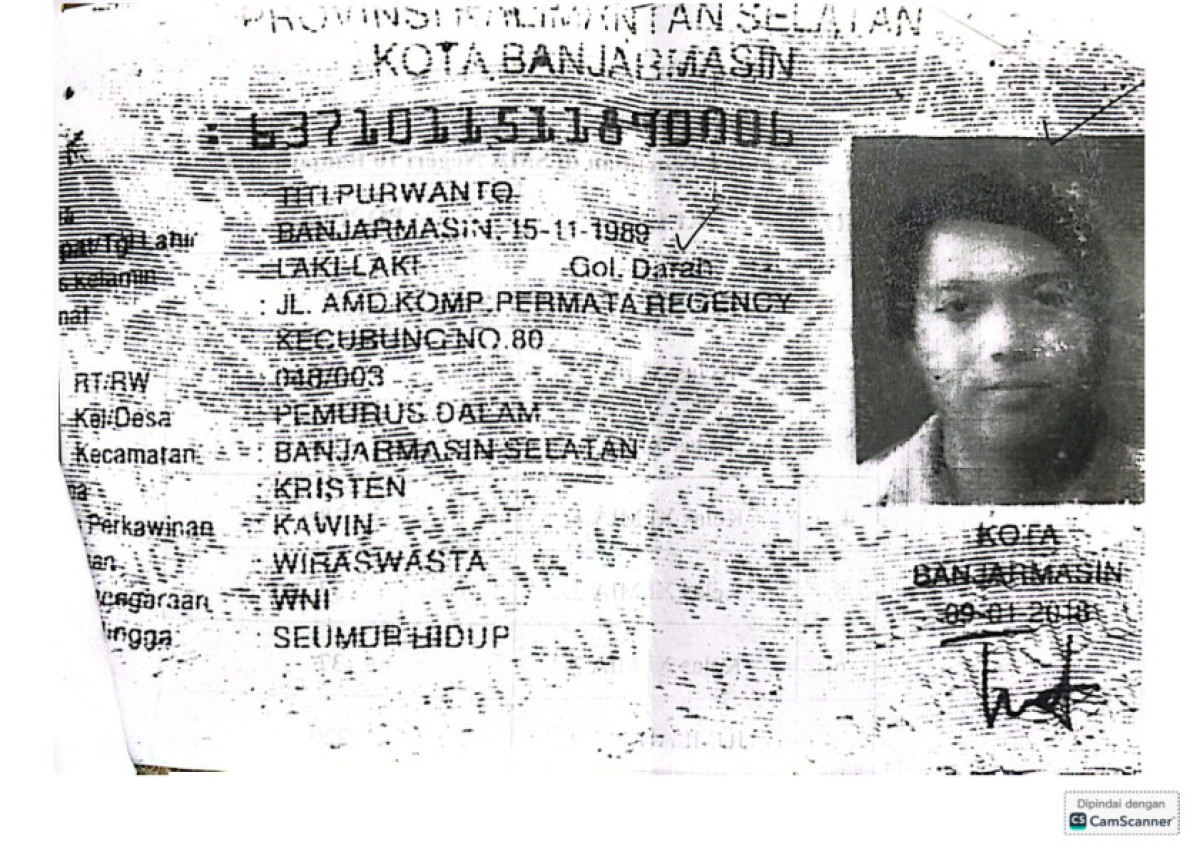 PROVINSI KALIMANTAN SELATAN
KOTA BANJARMASIN
: 6371011511890006
TITI PURWANTO
pat/Tgl Lahir BANJARMASIN, 15-11-1989
s kelamin LAKI-LAKI Gol. Darah
mat : JL. AMD KOMP. PERMATA REGENCY
KECUBUNG NO.80
RT/RW : 048/003
Kel/Desa : PEMURUS DALAM
Kecamatan : BANJARMASIN SELATAN
na : KRISTEN
Perkawinan : KAWIN
an : WIRASWASTA
egaraan : WNI
ingga : SEUMUR HIDUP
KOTA
BANJARMASIN
09-01-2018
Dipindai dengan
CS CamScanner